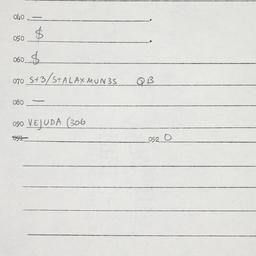 040 —
050 $
060 $
070 S+3/STALAXMUN3S QB
080 —
090 VEJUDA (306
092 0